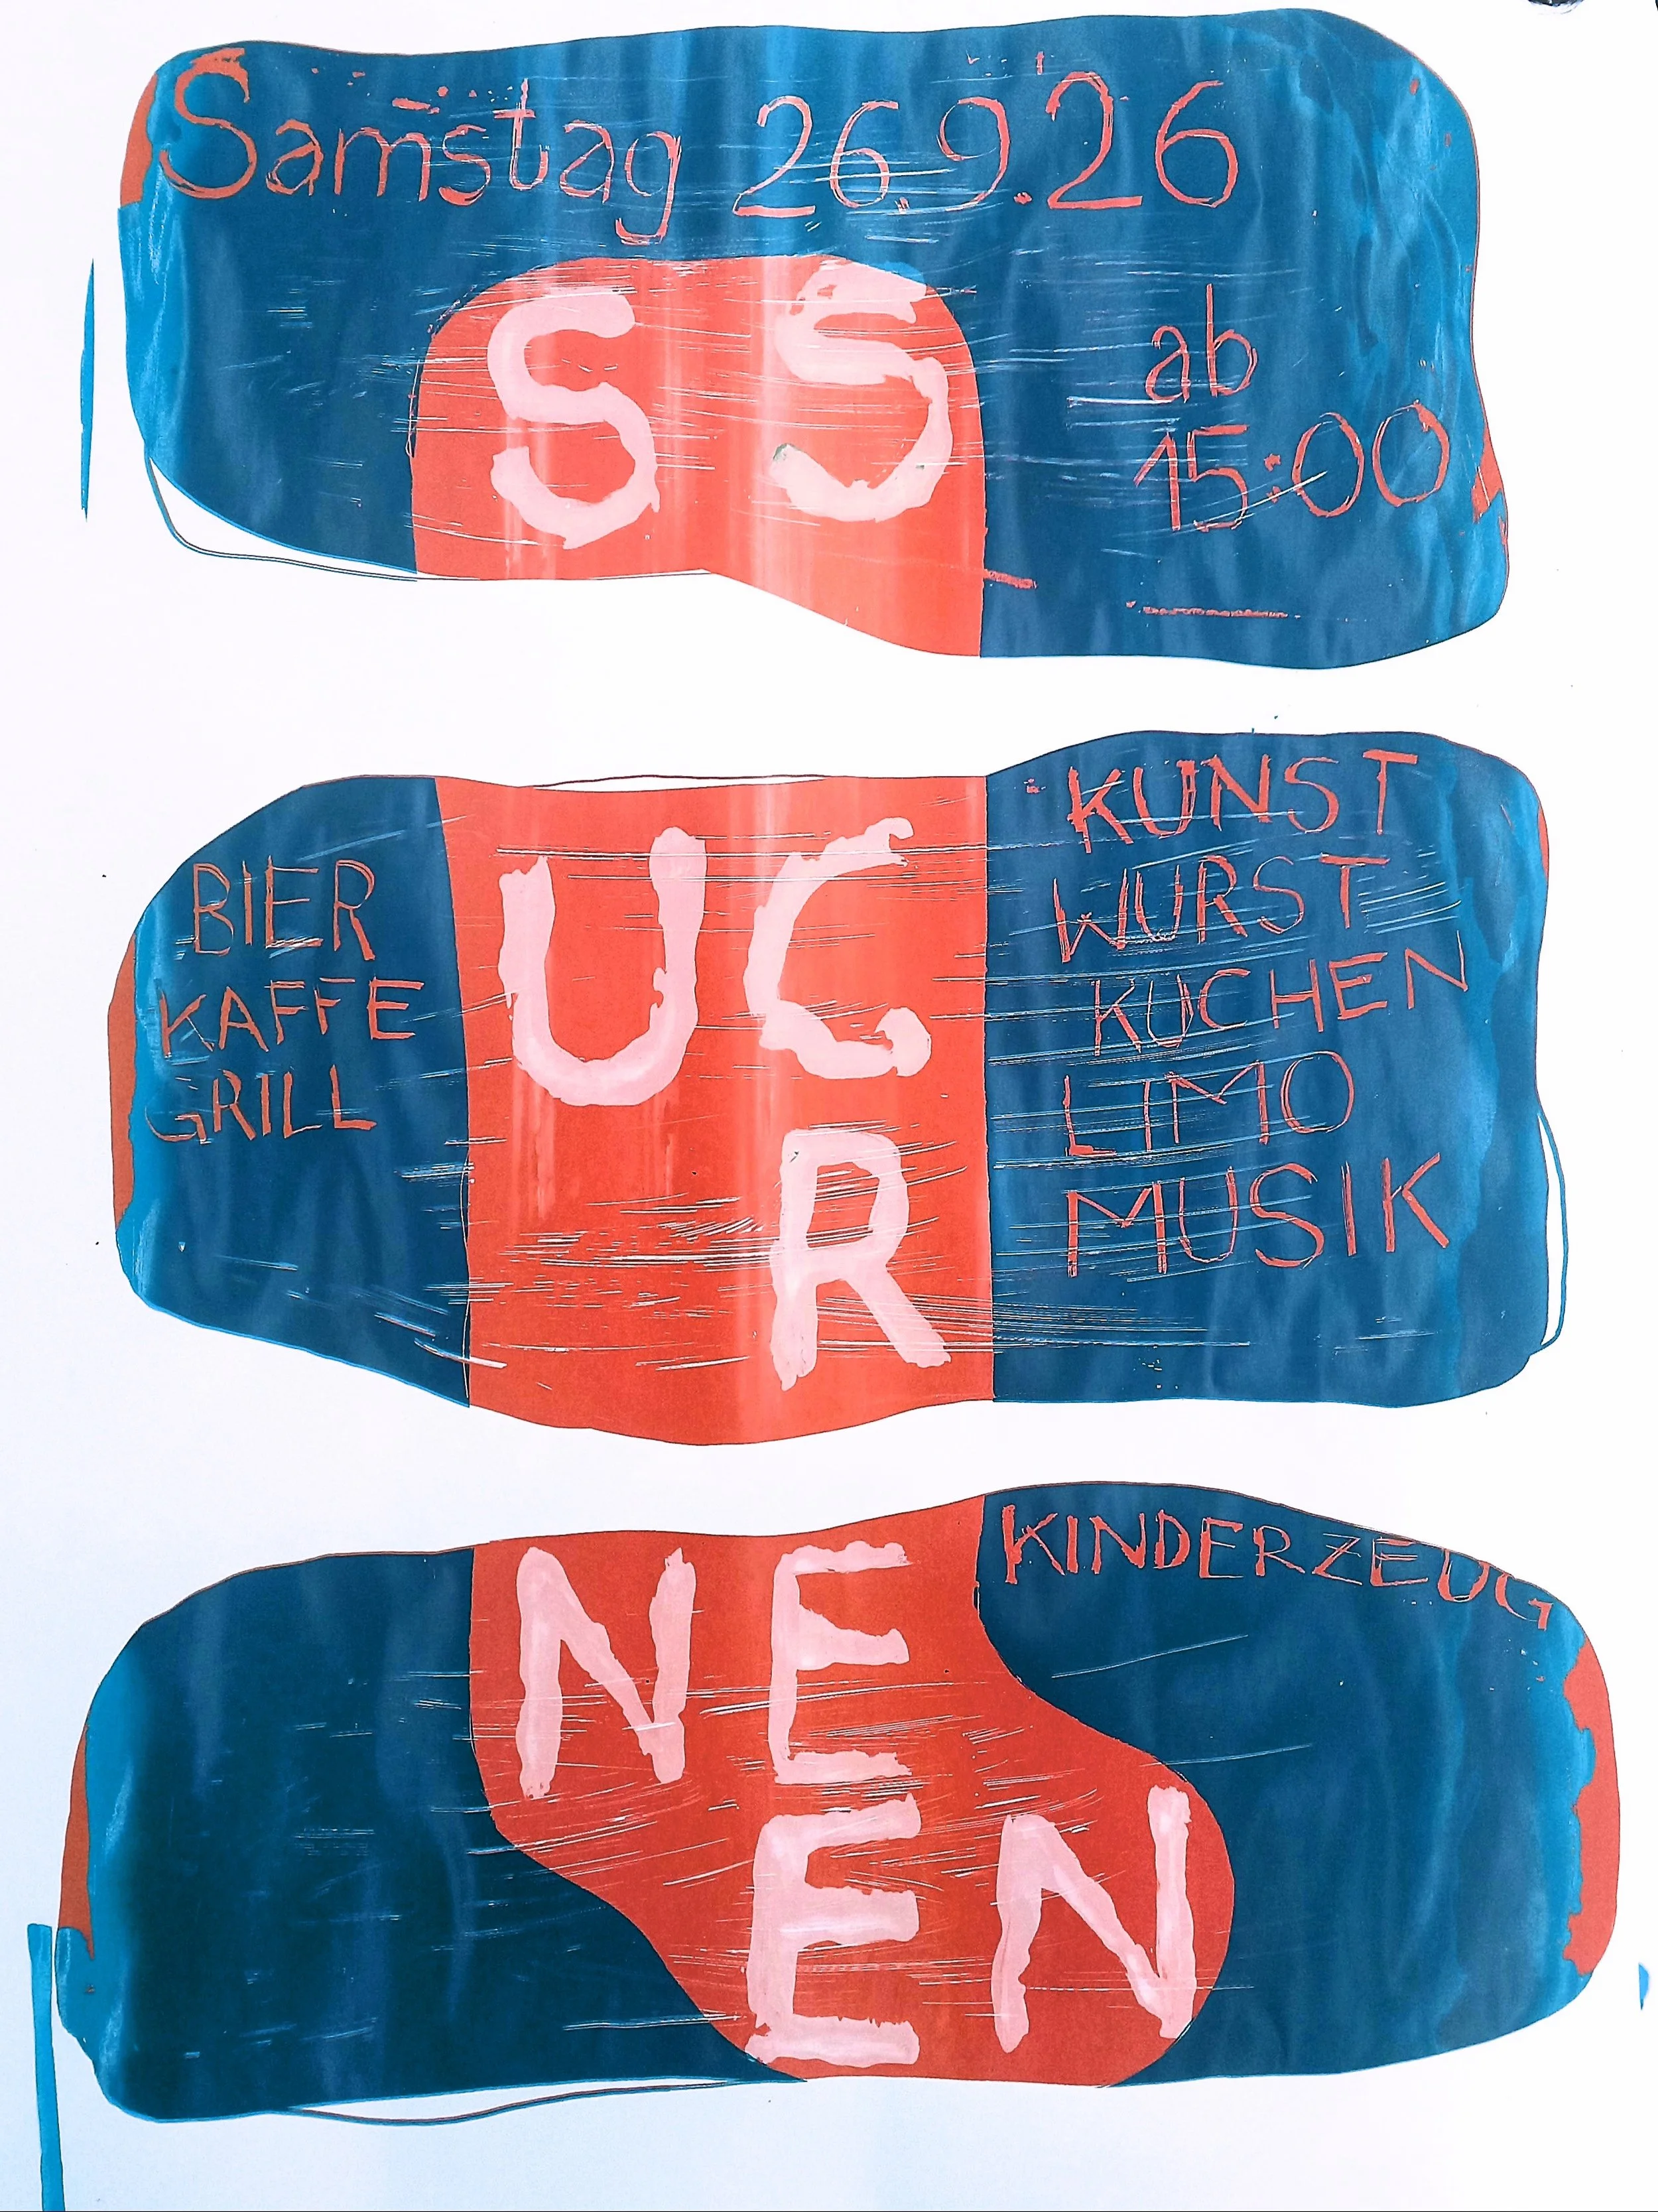 Samstag 26.9.26
S S
ab
15:00
BIER
KAFFE
GRILL
U C
R
KUNST
WURST
KUCHEN
LIMO
MUSIK
N E
E N
KINDERZEUG